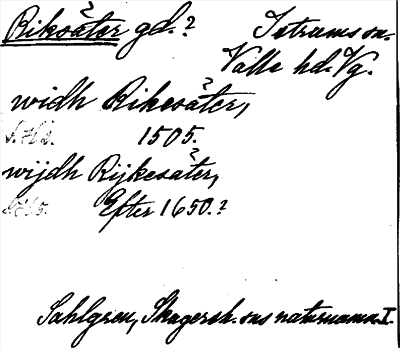 Riksäter gd.? Istrums sn.
Valle hd. Vg.
widh Rikesäter,
S.H.s. 1505.
wijdh Rijkesäter,
S.H.s. Efter 1650.?
Sahlgren, Skagersh. sns naturnamn I.